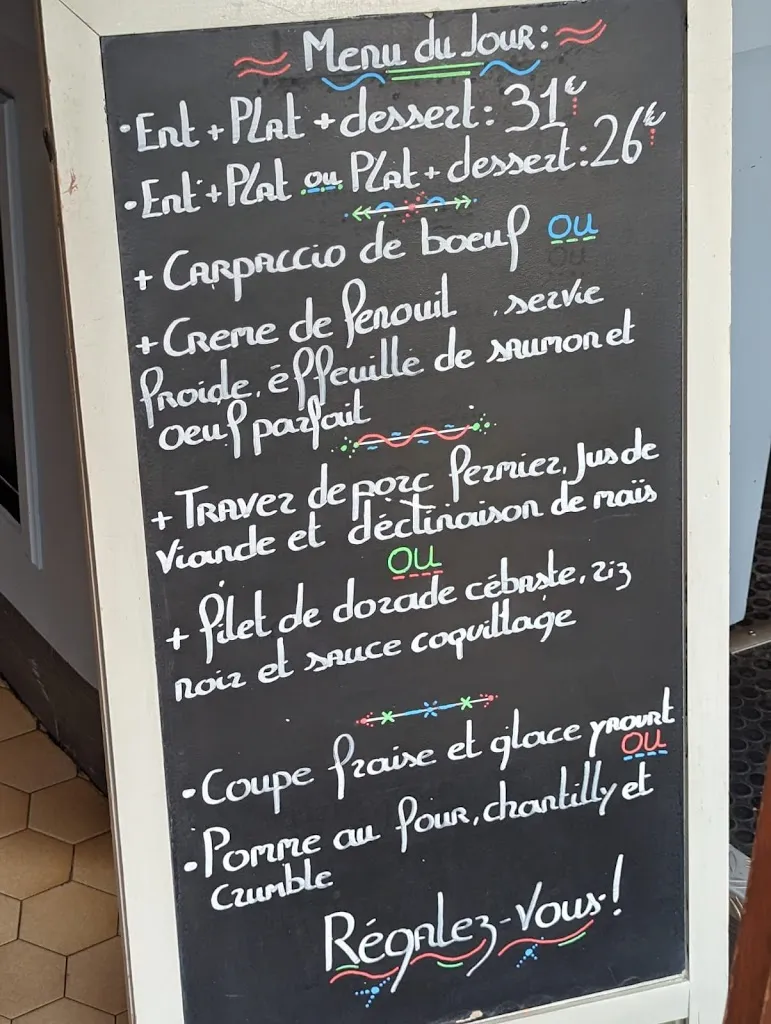 Menu du Jour:
• Ent + Plat + dessert: 31€
• Ent + Plat ou Plat + dessert: 26€
+ Carpaccio de boeuf ou
+ Creme de fenouil, servie
froide, éffeuillé de saumon et
oeuf parfait
+ Traver de porc fermier, Jus de
viande et déclinaison de maïs
OU
+ filet de dorade cébaste, riz
noir et sauce coquillage
• Coupe fraise et glace yaourt
OU
• Pomme au four, chantilly et
crumble
Régalez-Vous!